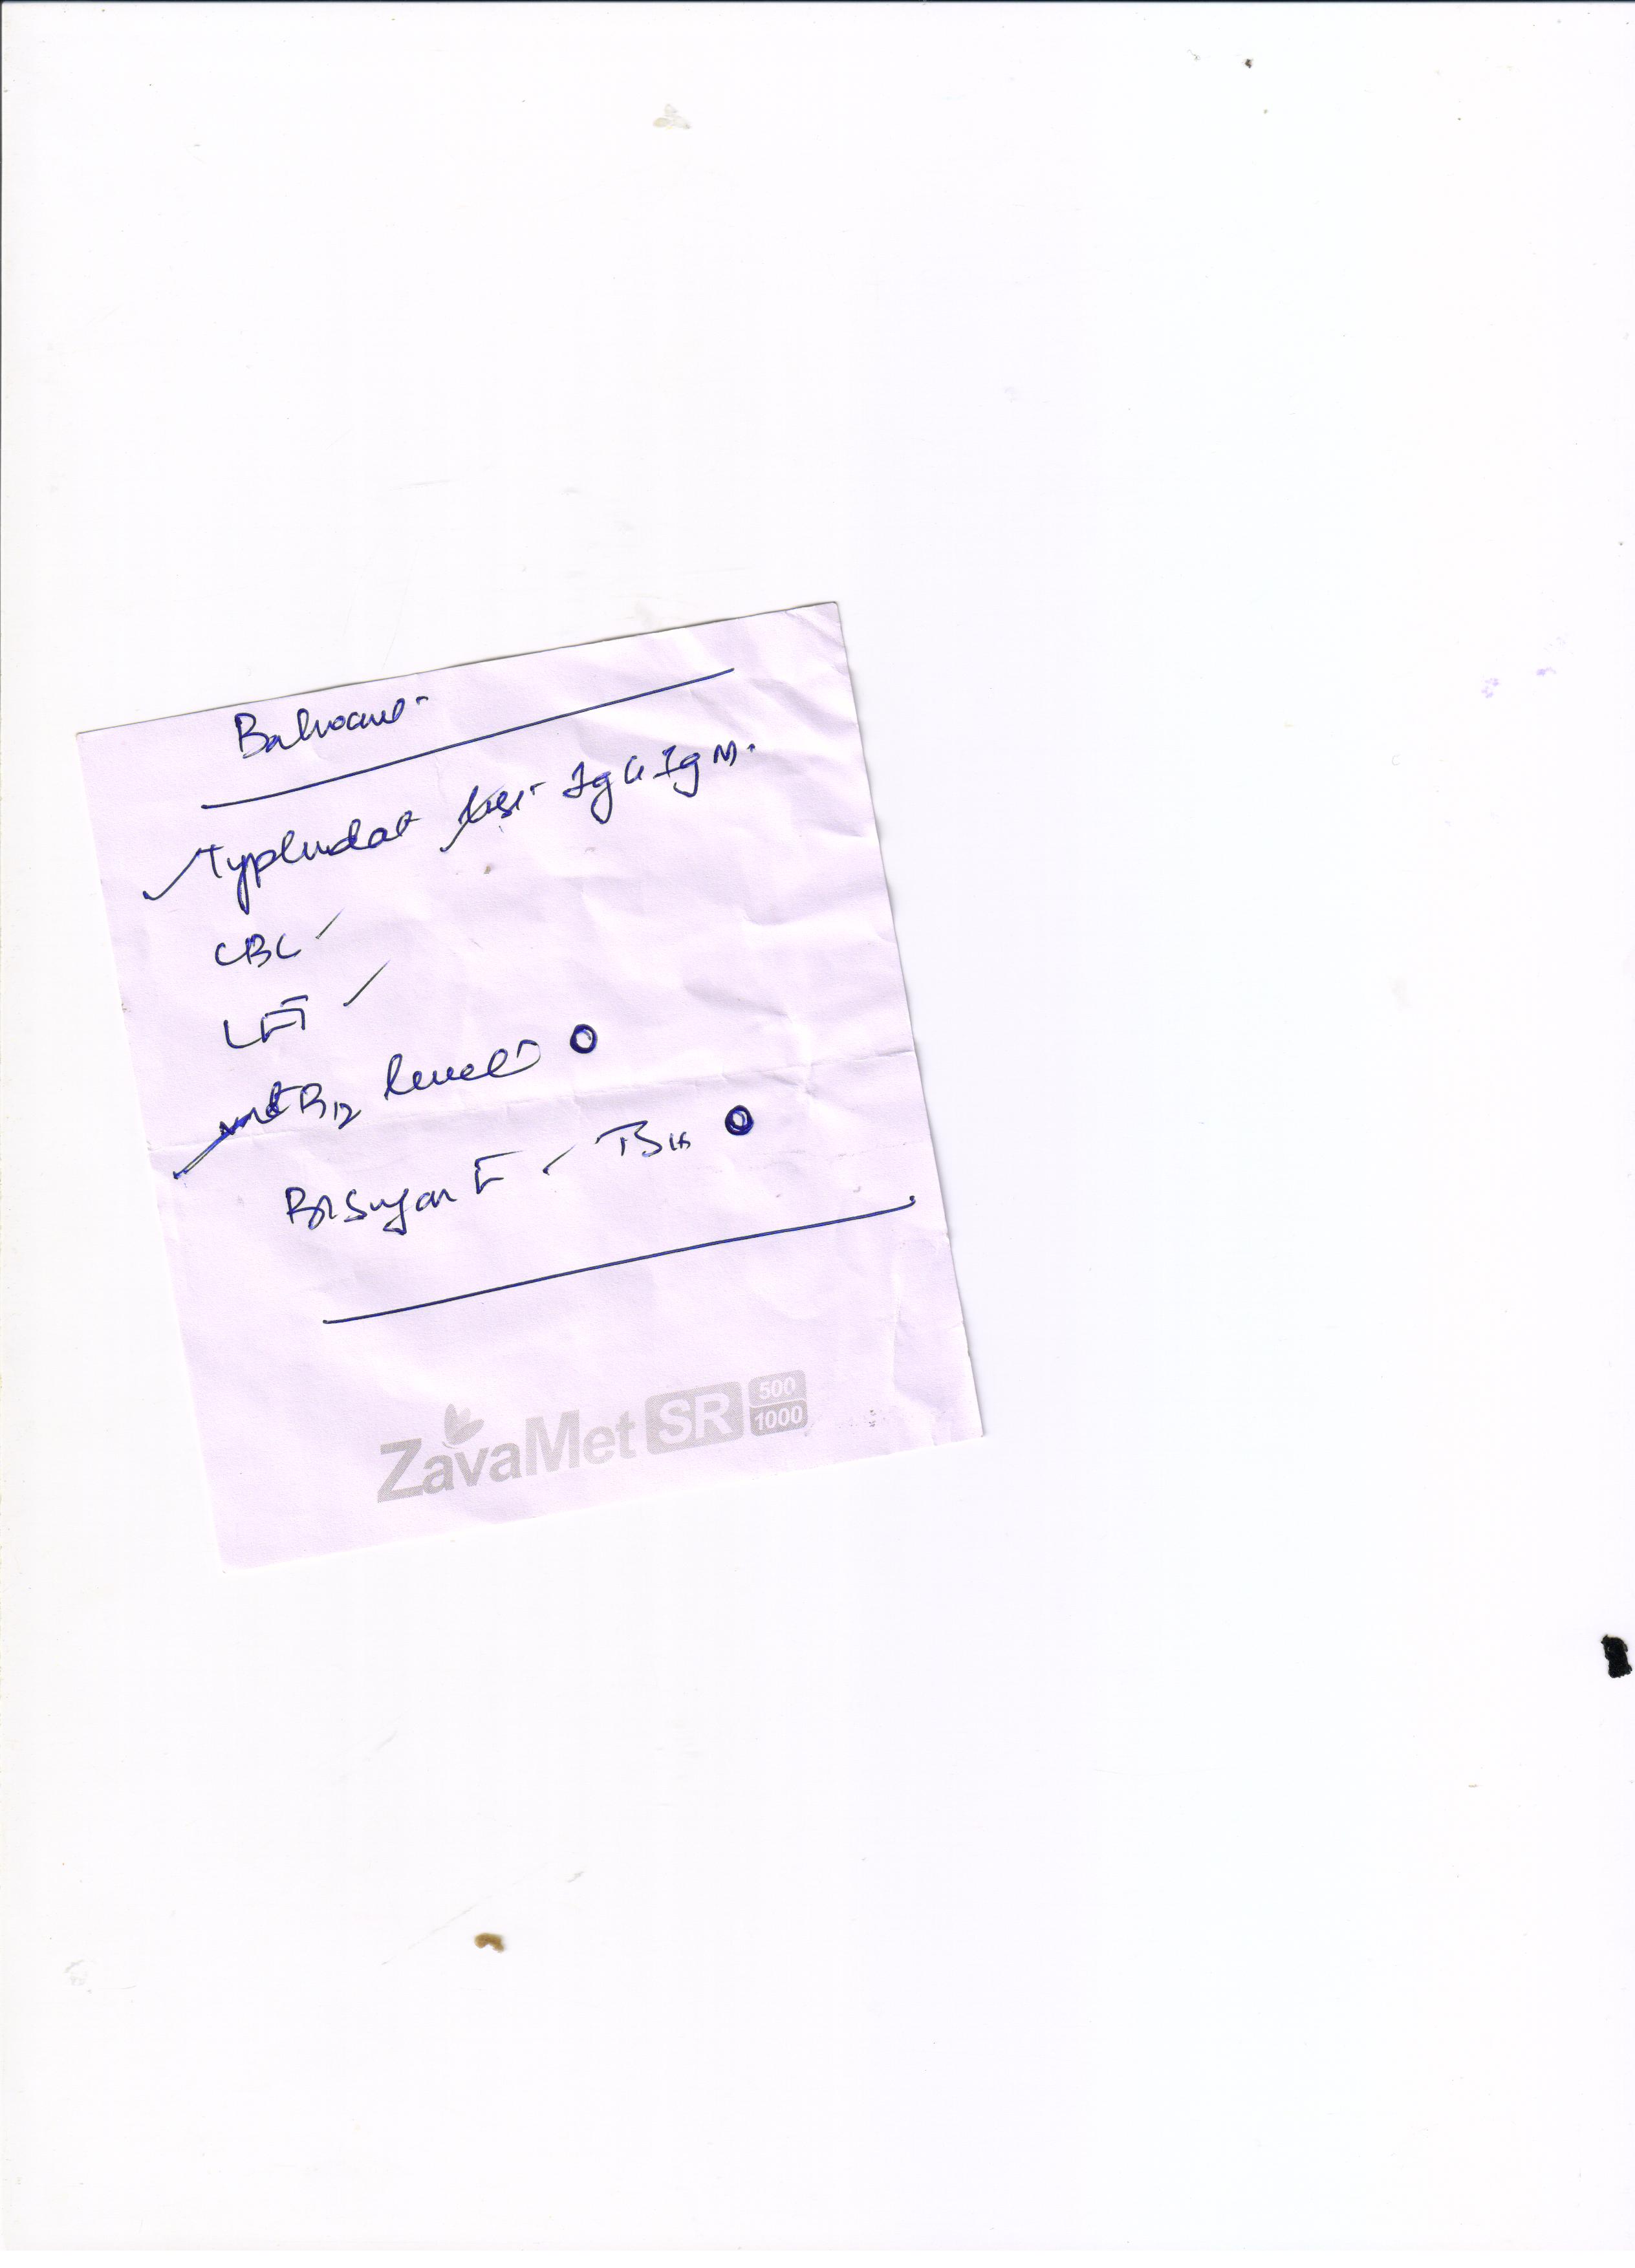 Balwant
Typhidot test IgG IgM.
CBC
LFT
vit B12 levels
Bl Sugar F TSH
ZavaMet SR 500 1000